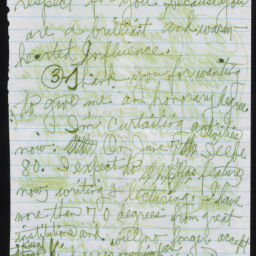 respect for you because you
are a brilliant and warm
hearted Influence.
③ Thank you for wanting
to give me an honorary degree.
I'm curtailing activities
now. On June 7 I'll be
80. I expect to emphasize
now writing & lecturing. I have
more than 70 degrees from great
institutions and will no longer accept